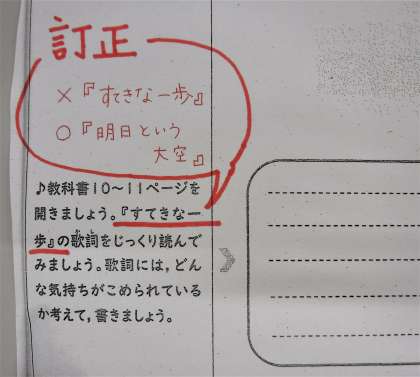 訂正
×『すてきな一歩』
○『明日という
大空』
♪教科書10〜11ページを
開きましょう。『すてきな一
歩』の歌詞をじっくり読んで
みましょう。歌詞には，どん
な気持ちがこめられている
か考えて，書きましょう。